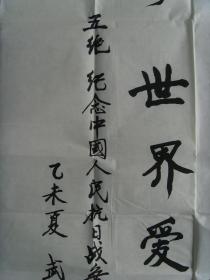 世界爱
五绝 纪念中國人民抗日战争
乙未夏 武